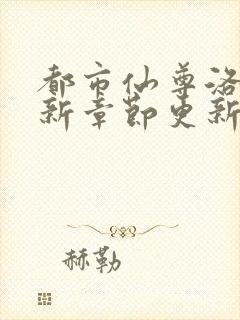 都市仙尊洛
新章节更新
赫勒